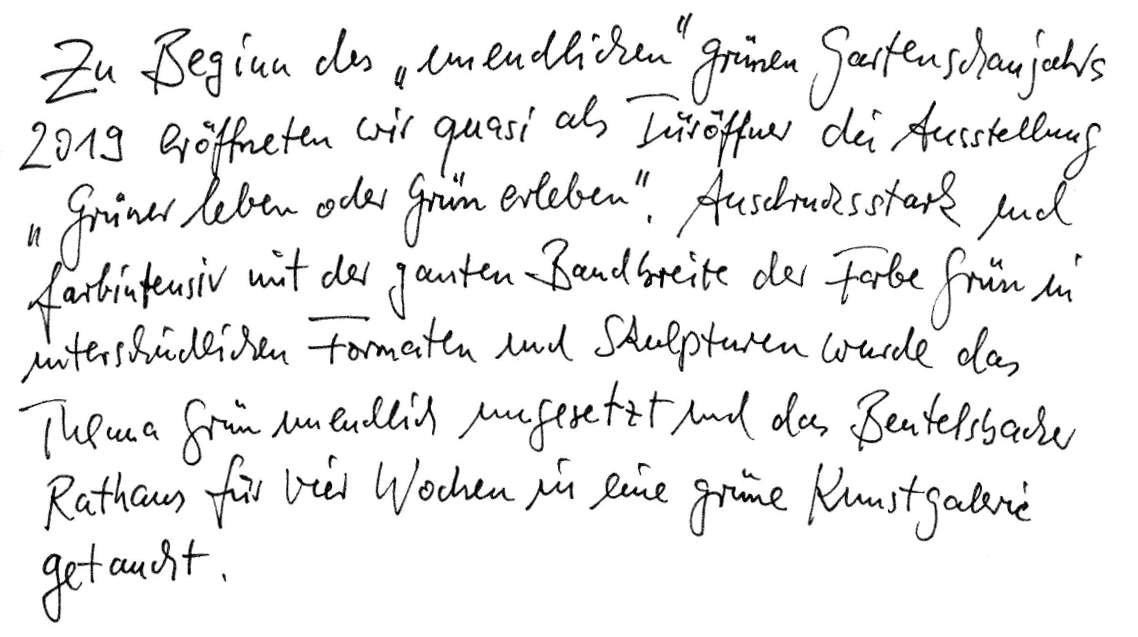 Zu Beginn des „unendlichen“ grünen Gartenschaujahrs
2019 eröffneten wir quasi als Türöffner die Ausstellung
„Grüner leben oder Grün erleben“. Ausdrucksstark und
farbintensiv mit der ganzen Bandbreite der Farbe Grün in
unterschiedlichen Formaten und Skulpturen wurde das
Thema Grün unendlich umgesetzt und das Beutelsbacher
Rathaus für vier Wochen in eine grüne Kunstgalerie
getaucht.